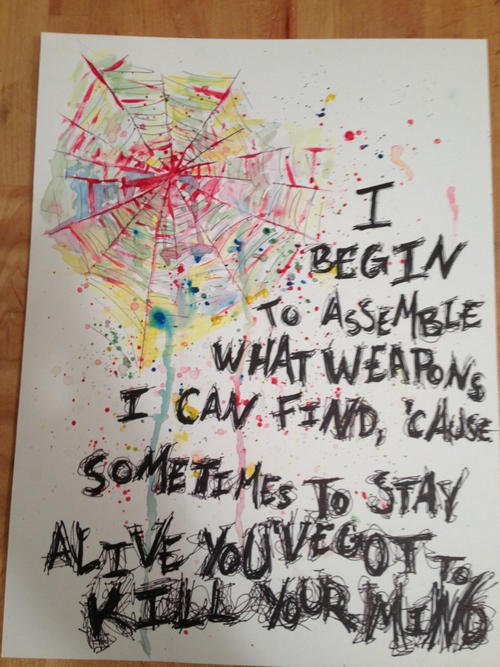 I
BEGIN
TO ASSEMBLE
WHAT WEAPONS
I CAN FIND, 'CAUSE
SOMETIMES TO STAY
ALIVE YOU'VE GOT TO
KILL YOUR MIND